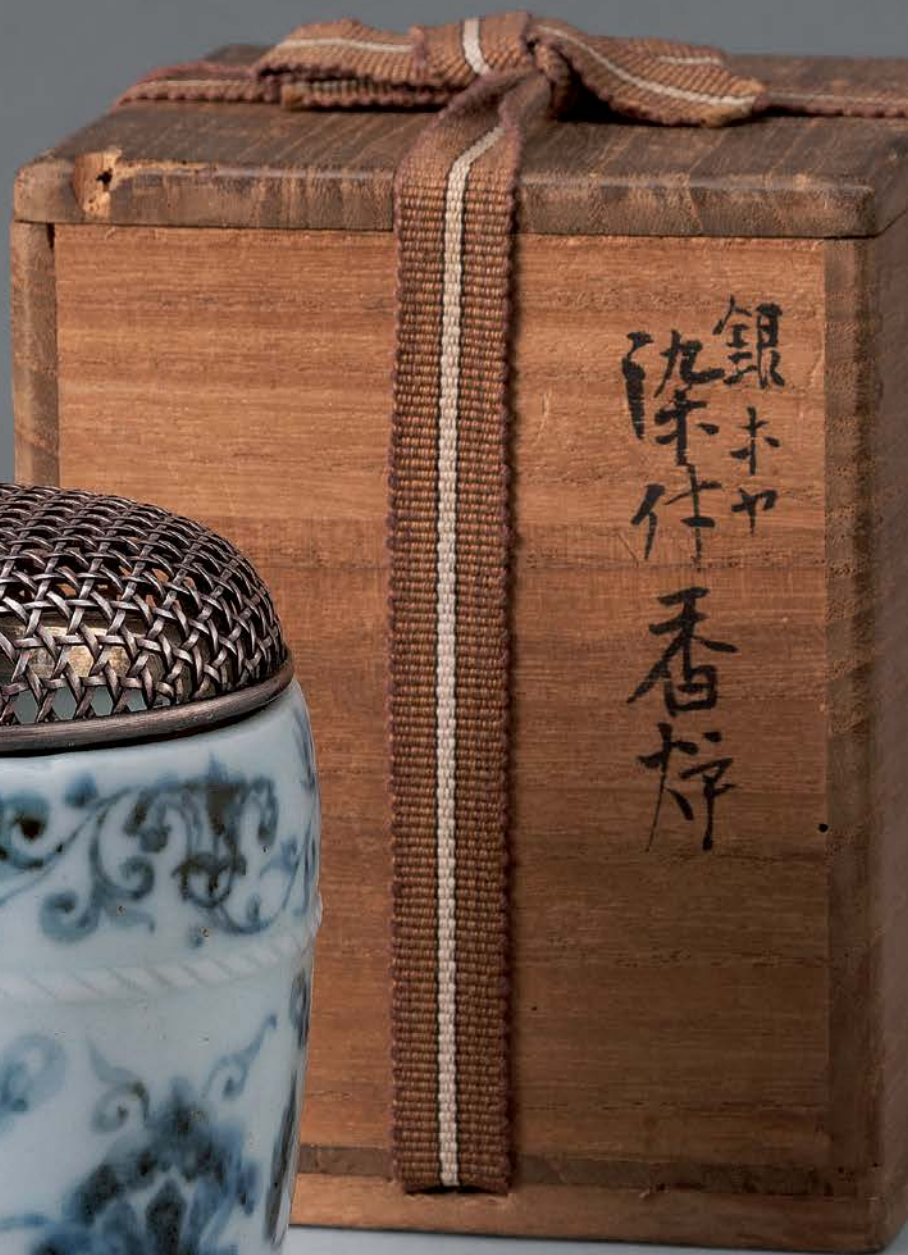 銀ホヤ
染付香炉